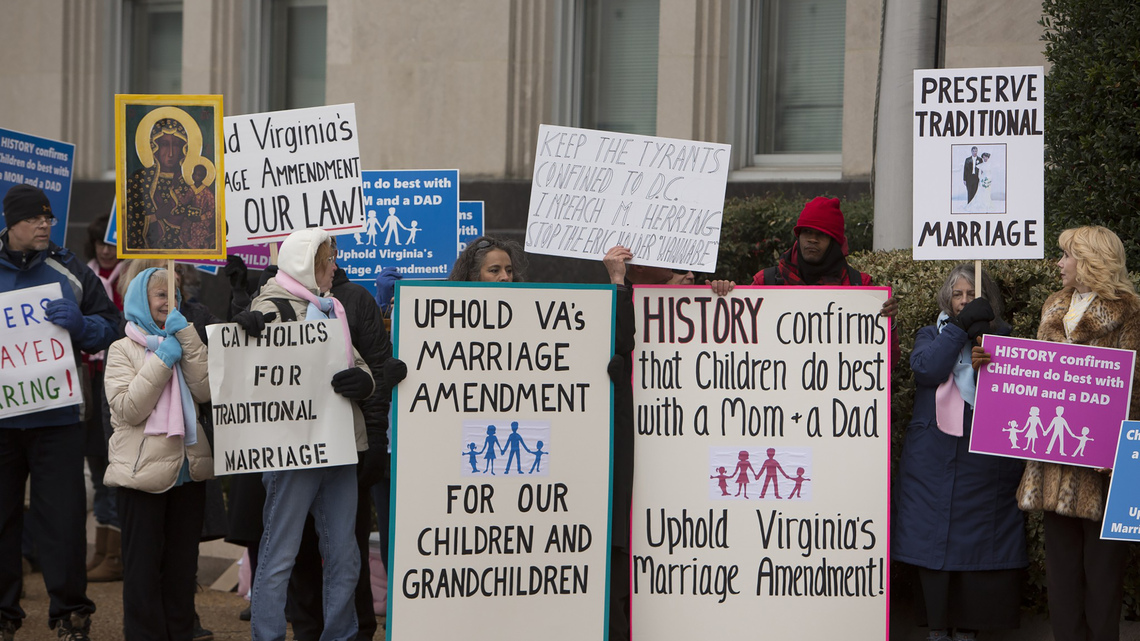 HISTORY confirms
Children do best with
a MOM and a DAD
Virginia's
AMMENDMENT
OUR LAW!
do best with
M and a DAD
Uphold Virginia's
Marriage Amendment!
KEEP THE TYRANTS
CONFINED TO D.C.
IMPEACH M. HERRING
STOP THE ERIC HOLDER WANNABE
PRESERVE
TRADITIONAL
MARRIAGE
AYED
RING!
CATHOLICS
FOR
TRADITIONAL
MARRIAGE
UPHOLD VA's
MARRIAGE
AMENDMENT
FOR OUR
CHILDREN AND
GRANDCHILDREN
HISTORY confirms
that Children do best
with a Mom + a Dad
Uphold Virginia's
Marriage Amendment!
HISTORY confirms
Children do best with
a MOM and a DAD